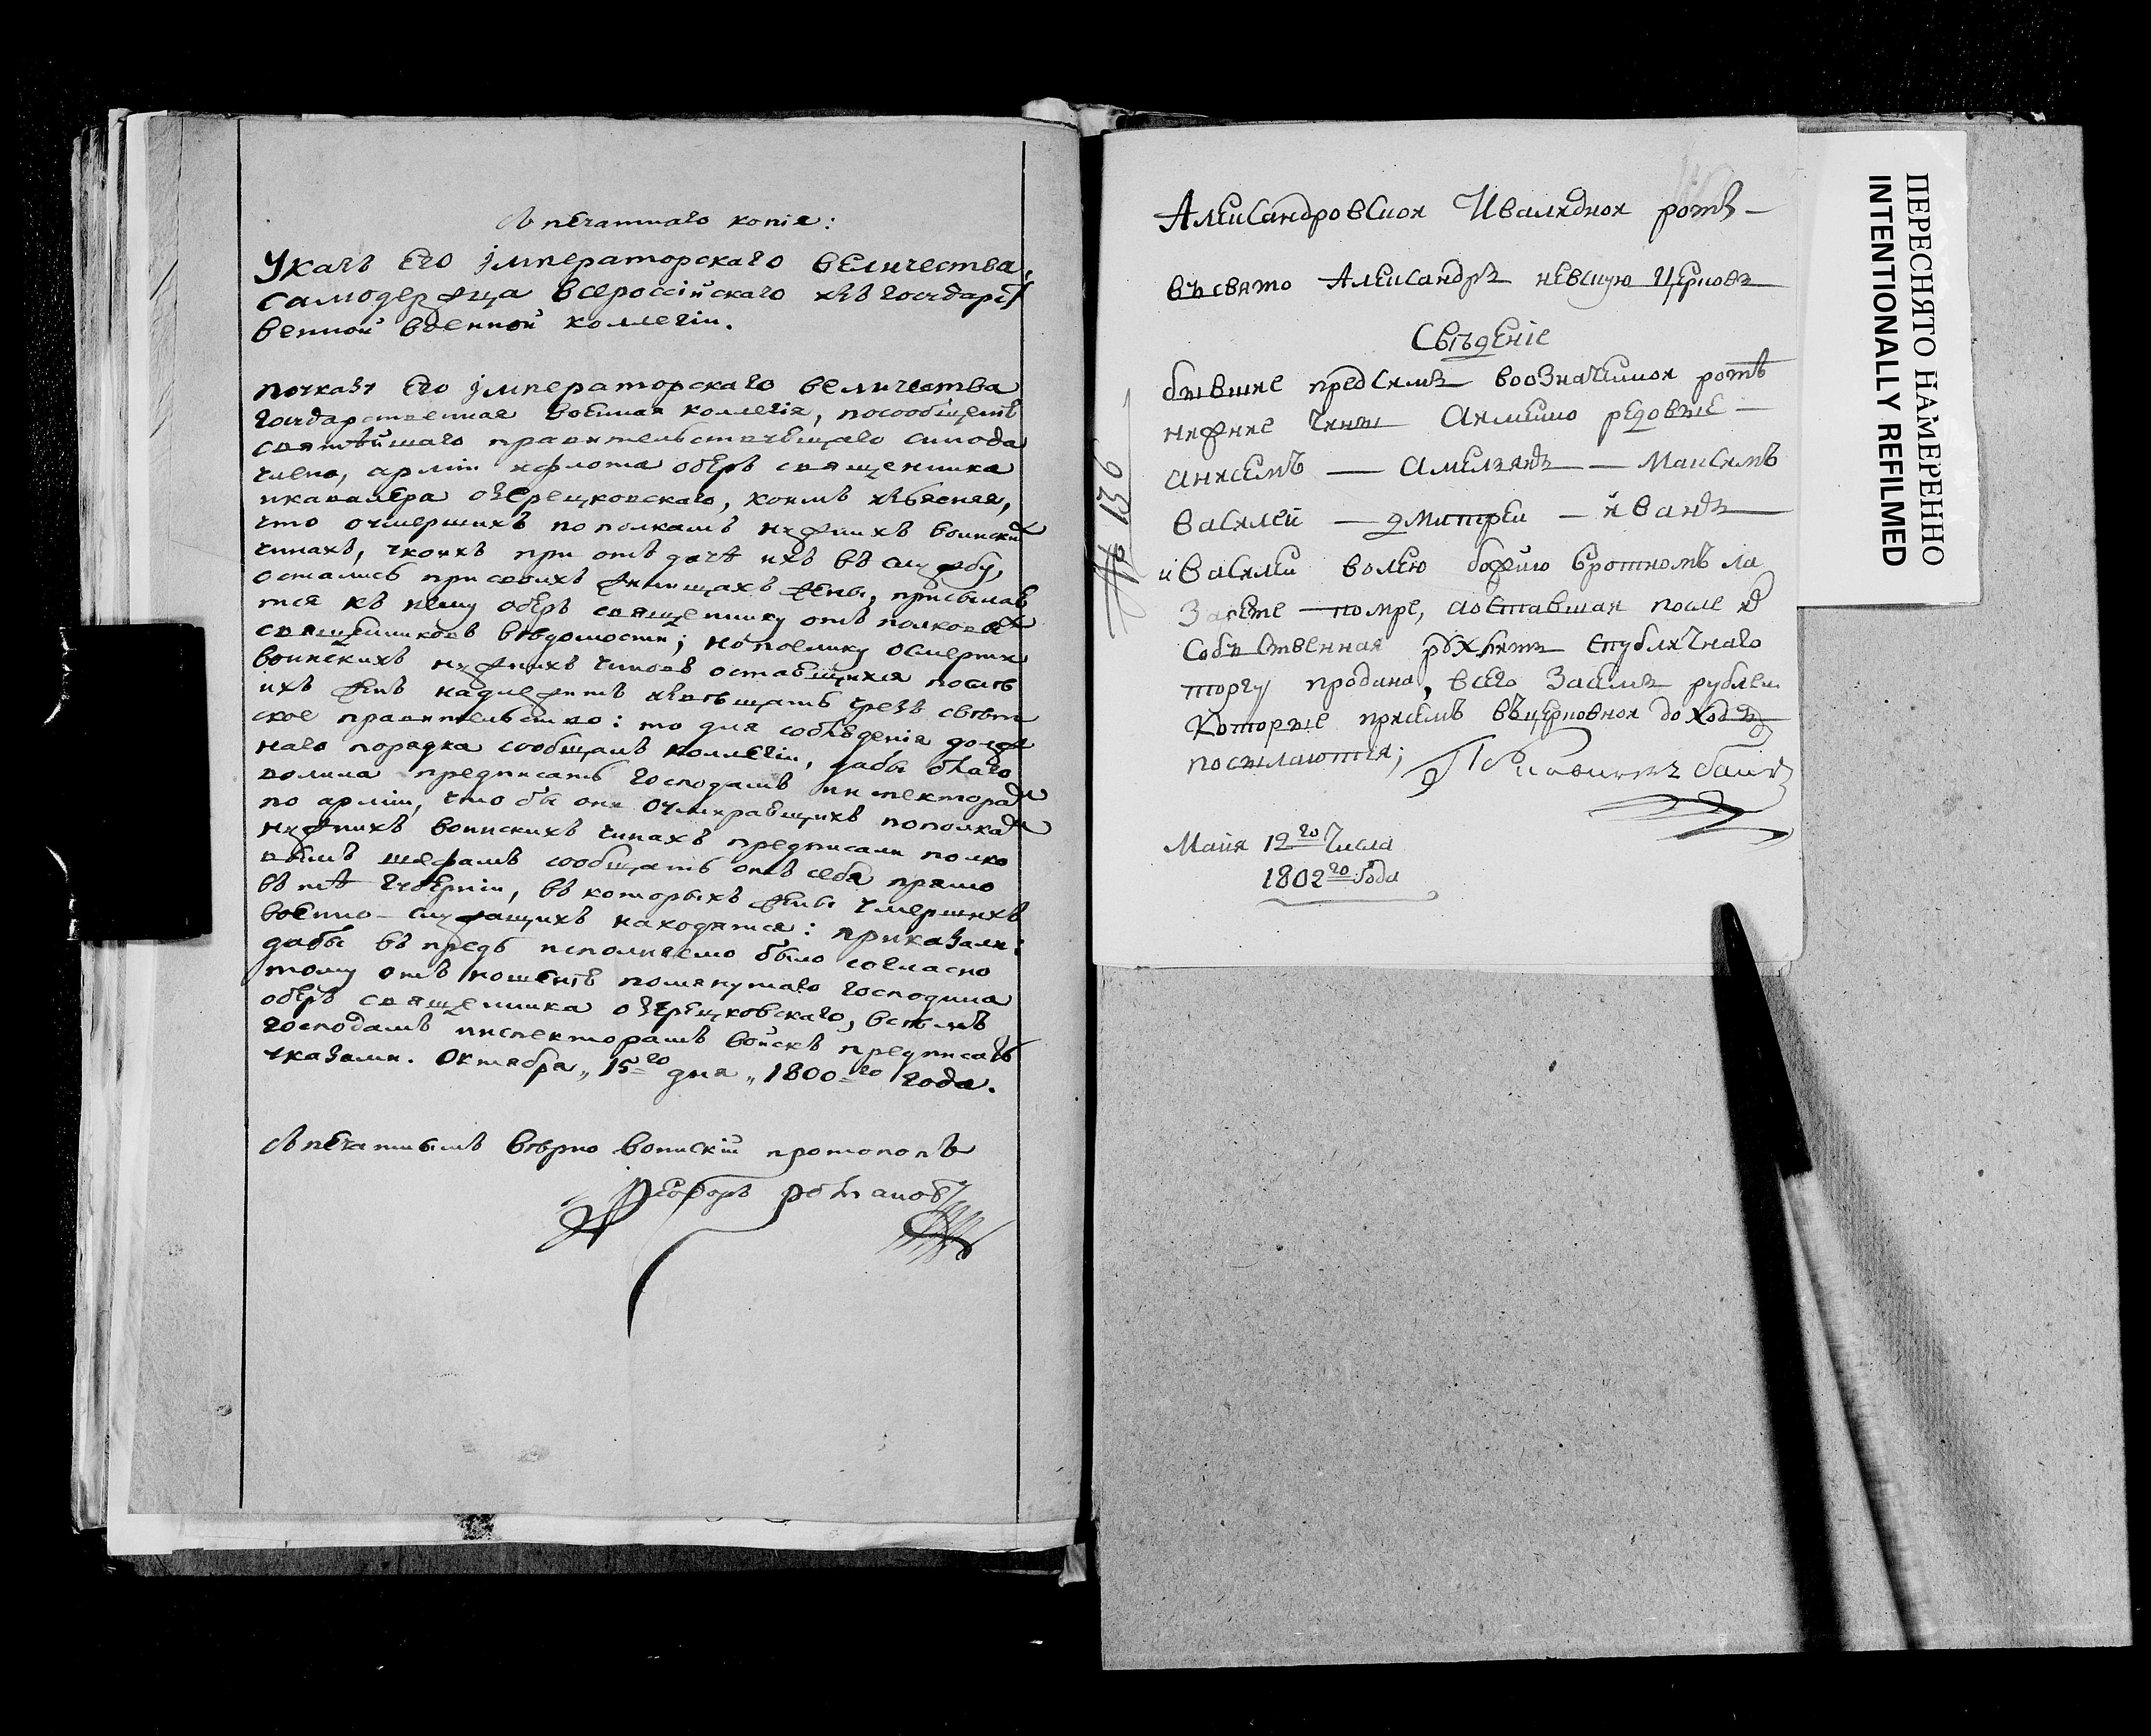 съ печатнаго копія:
Указъ Его Императорскаго величества,
самодержца всероссійскаго изъ государст
венной военной коллегіи.
по указу Его Императорскаго величества
государственная военная коллегія, по сообщенію
святѣйшаго правительствующаго синода
члена, арміи и флота оберъ священника
и кавалера озерецковскаго, коимъ изъясняя,
что о умершихъ по полкамъ нижнихъ воинскихъ
чинахъ, у коихъ при отъдачѣ ихъ въ службу
остались при своихъ жилищахъ жены, присылаю
тся къ нему оберъ священнику отъ полковыхъ
священниковъ вѣдомости; но поелику о смерти
воинскихъ нижнихъ чиновъ оставшихся послѣ
ихъ женъ надлежитъ извѣщать чрезъ свѣтс
кое правительство: то для соблюденія долж
наго порядка сообщалъ коллегіи, дабы благо
волила предписать господамъ инспекторамъ
по арміи, что бы они о умиравщихъ по полкамъ
нижнихъ воинскихъ чинахъ предписали полко
вымъ шефамъ сообщать отъ себя прямо
въ тѣ губерніи, въ которыхъ жены умершихъ
военно-служащихъ находятся: приказали:
дабы въ предь исполняемо было согласно
тому отъ ношенію помянутаго господина
оберъ священника озерецковскаго, всѣмъ
господамъ инспекторамъ войскъ предписать
указами. Октября „15=го дня „1800=го года.
съ печатнымъ вѣрно воинскій протопопъ
Феодоръ
№ 136
Александровския Ивалидния роты —
въ свято Александръ невскую церковъ
Свѣдение
бывшие предсимъ воозначимоя ротѣ
нижние чины Аимянно редовые —
анисимъ — Амильянъ — Максимъ
василей — дмитреи — Иванъ
и Васили волею божию вротномъ ла
зарете помре, аоставшая после их
собственная спубличнаго
торгу продана, всего Заимъ рублеи
которые присемъ въцерковнои доходъ
посылаютъся;
Майя 12го Числа
1802го Года
ПЕРЕСНЯТО НАМЕРЕННО
INTENTIONALLY REFILMED